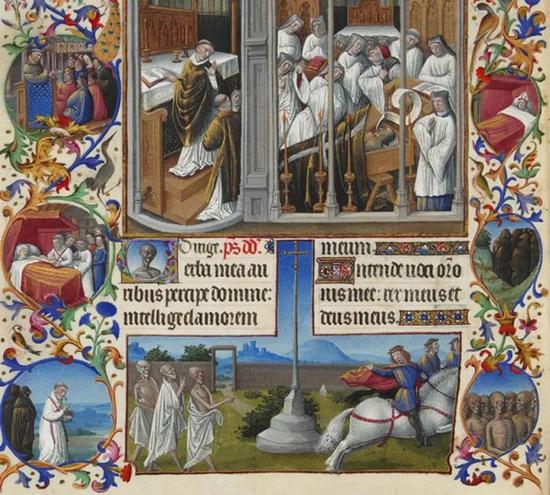 Dirige. ps dd.
Verba mea au
ribus percipe domine:
intellige clamorem
meum.
Intende uoci oro
nis mee: rex meus et
deus meus.